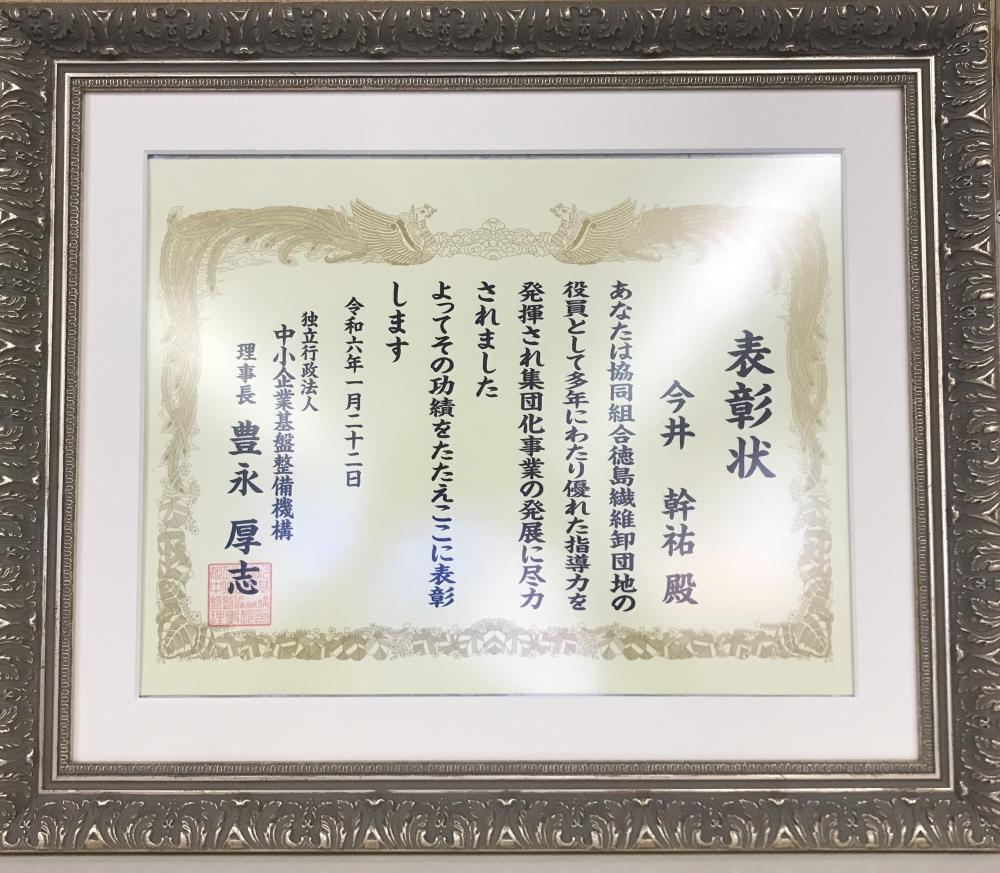 表彰状
今井 幹祐 殿
あなたは協同組合徳島繊維卸団地の
役員として多年にわたり優れた指導力を
発揮され集団化事業の発展に尽力
されました
よってその功績をたたえここに表彰
します
令和六年一月二十二日
独立行政法人
中小企業基盤整備機構
理事長 豊永 厚志